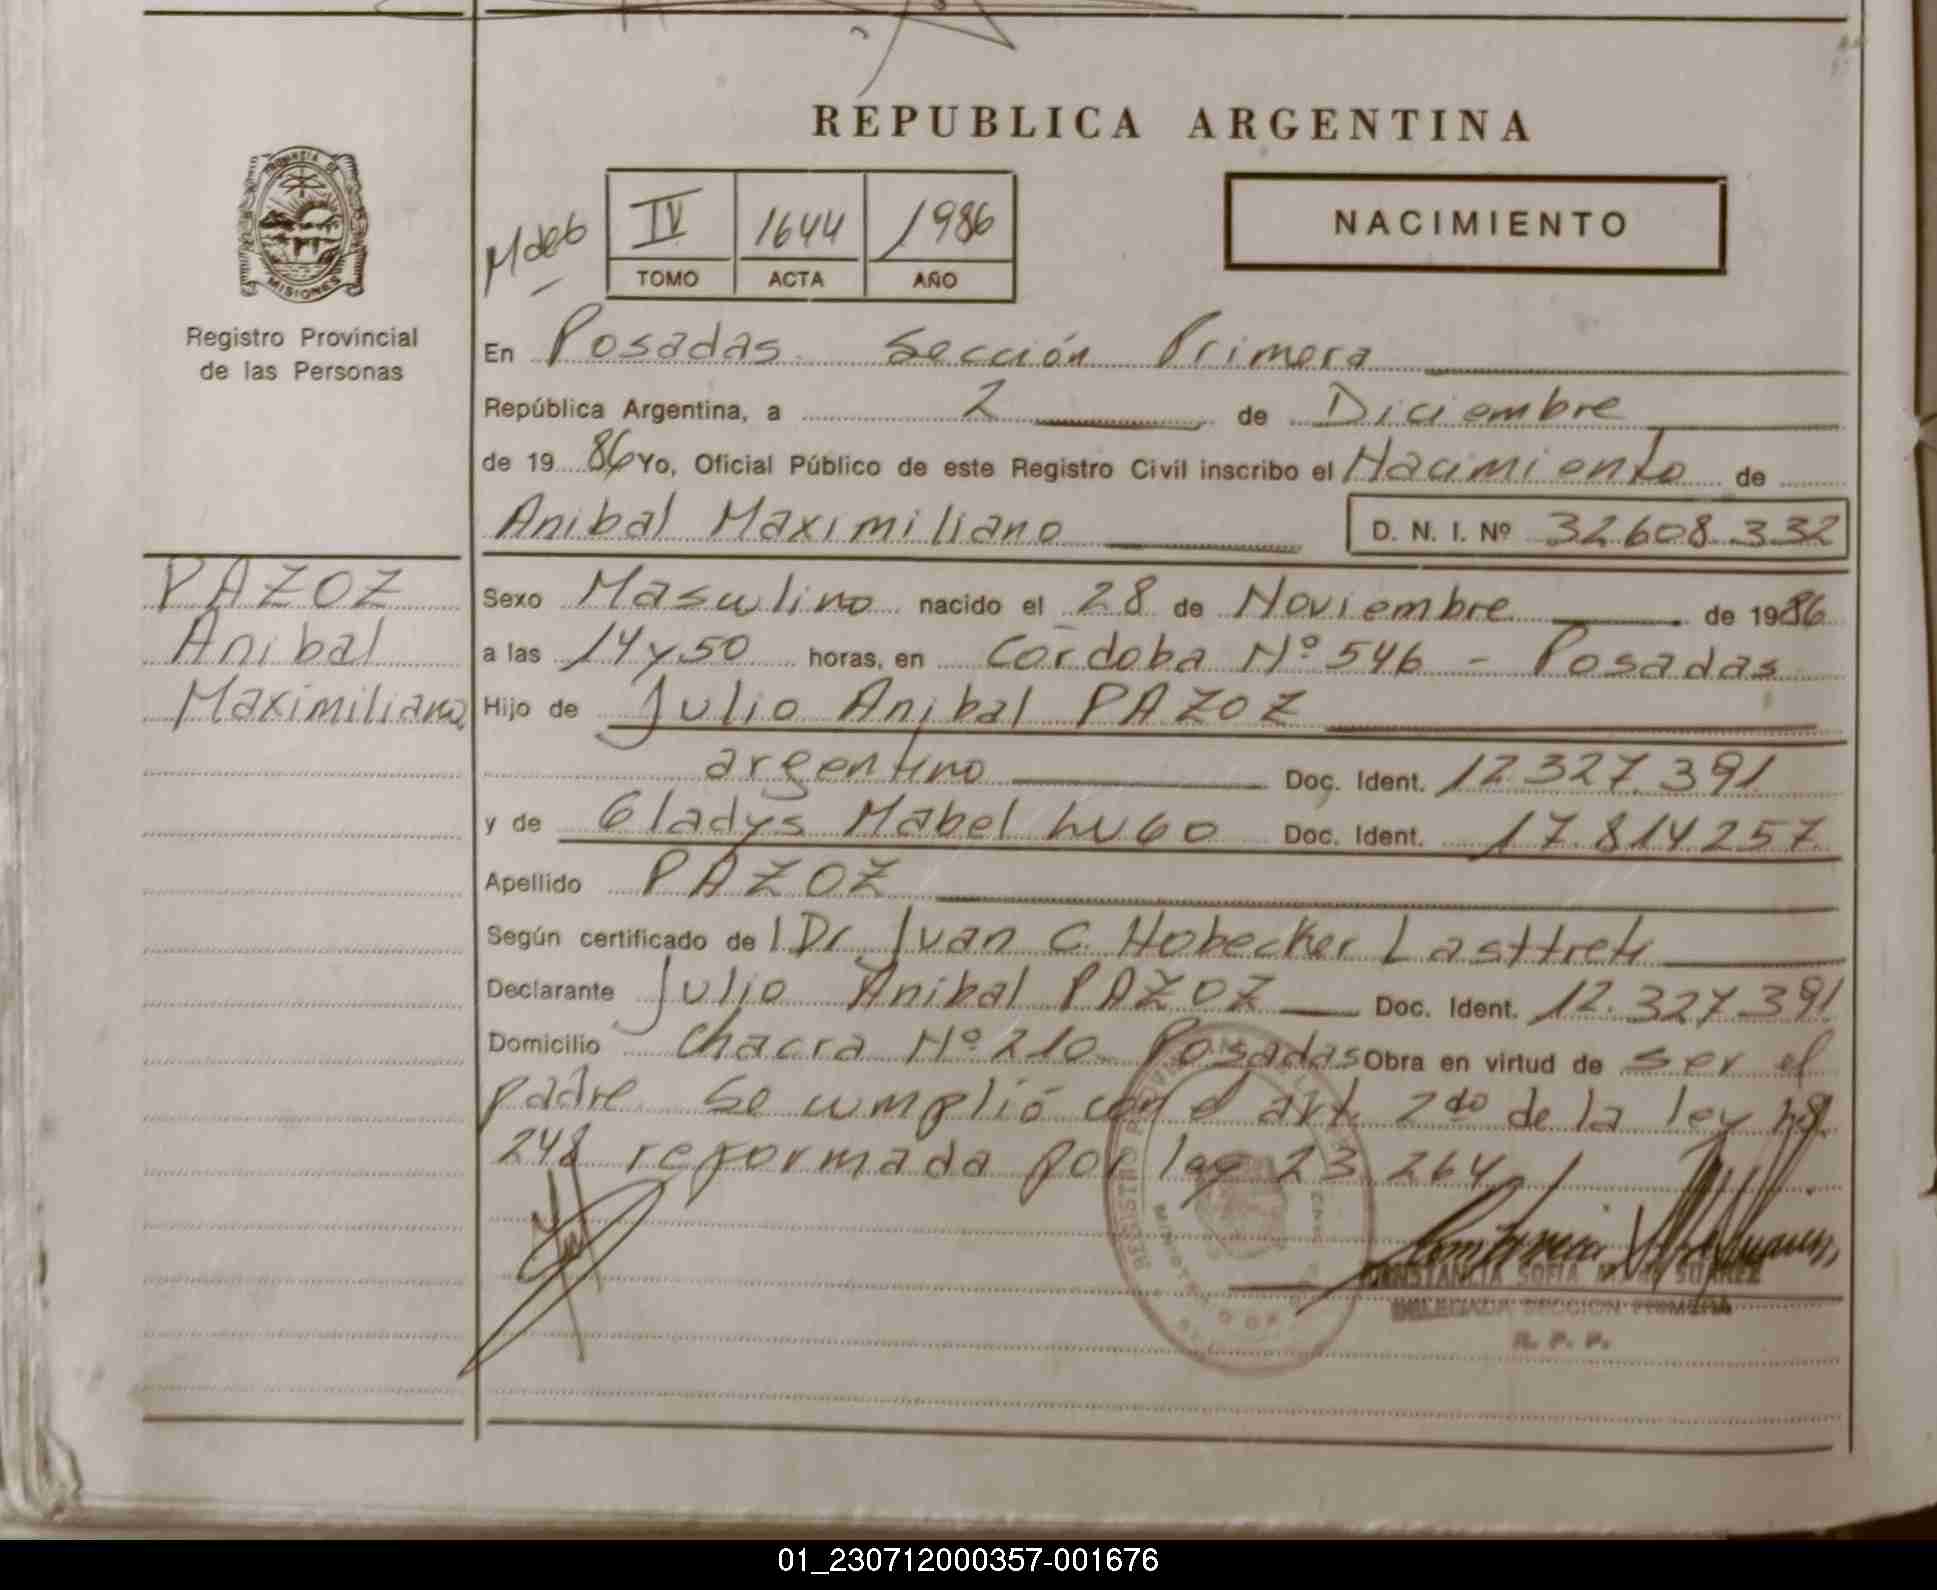 REPUBLICA ARGENTINA
PROVINCIA DE
MISIONES
Registro Provincial
de las Personas
IV 1644 1986
TOMO ACTA AÑO
NACIMIENTO
En Posadas Sección Primera
República Argentina, a 2 de Diciembre
de 1986 Yo, Oficial Público de este Registro Civil inscribo el Nacimiento de
Anibal Maximiliano D. N. I. Nº 32.608.332
PAZOZ
Anibal
Maximiliano
Sexo Masculino nacido el 28 de Noviembre de 1986
a las 14 y 50 horas, en Córdoba Nº 546 - Posadas
Hijo de Julio Anibal PAZOZ
argentino Doc. Ident. 12.327.391
y de Gladys Mabel LUGO Doc. Ident. 17.814.257
Apellido PAZOZ
Según certificado de Dr Juan C. Hobecker
Declarante Julio Anibal PAZOZ Doc. Ident. 12.327.391
Domicilio Chacra Nº 210 Posadas Obra en virtud de ser el
padre. Se cumplió con el art. 2do de la ley 18.
248 reformada por ley 23.264
CONSTANCIA SOFIA SUAREZ
DELEGADA SECCION PRIMERA
R. P. P.
01_230712000357-001676